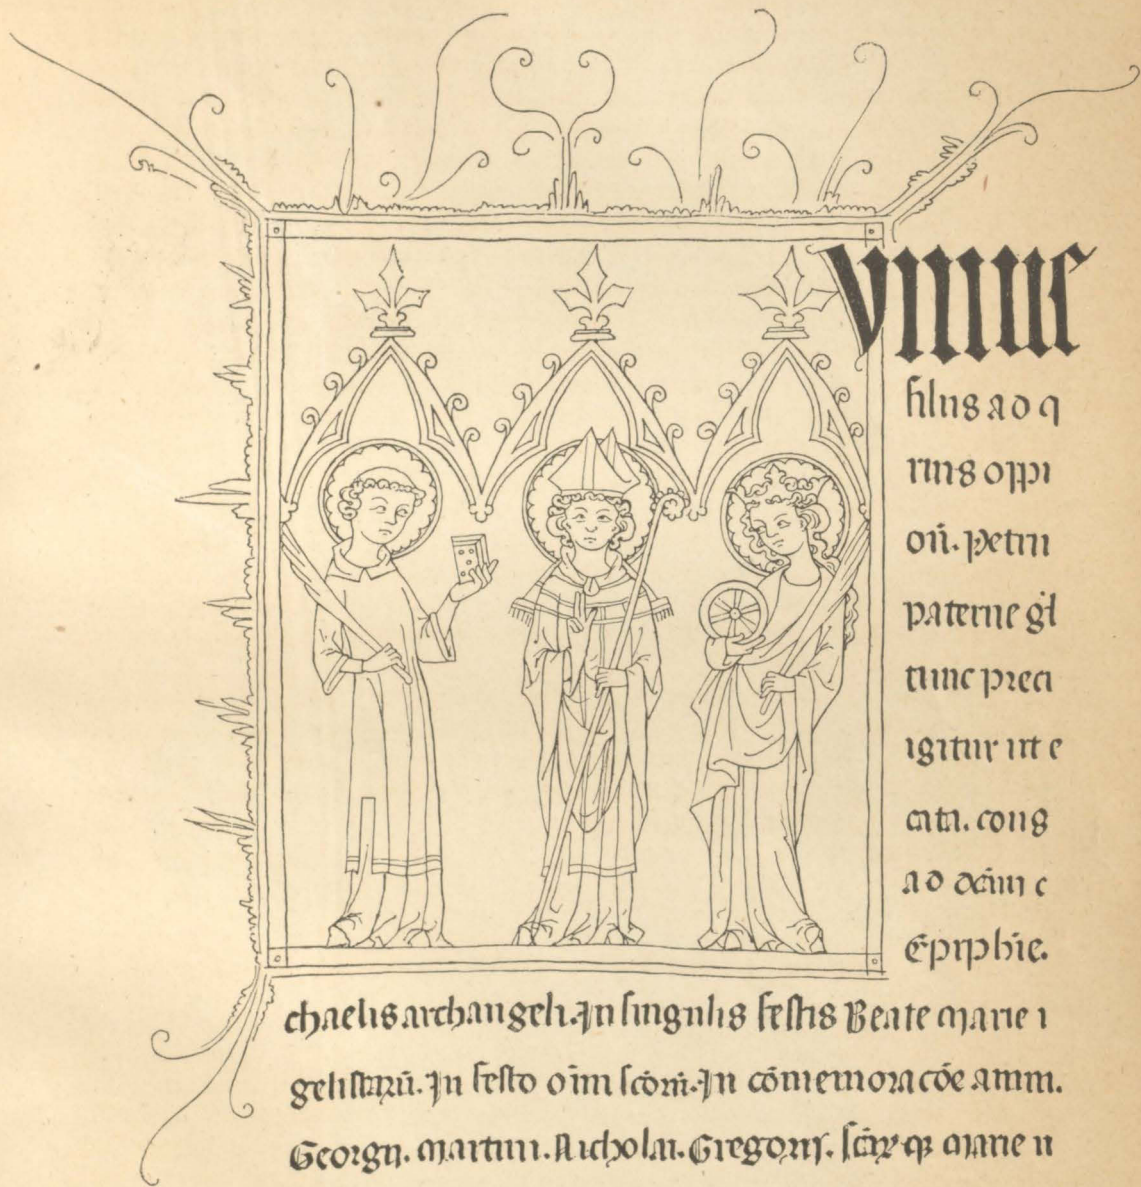 Uniue
filiis ac q
rius oppi
oñ. petrii
paterne gl
tunc preci
igitur
cata. cong
ad
Epiphie.
chaelis archangeli. In singulis festis Beate marie i
gelistarū. In festo oim scōrū. In cōmemoracōe amm.
Georgii. martini. Nicholai. Gregorii. marie